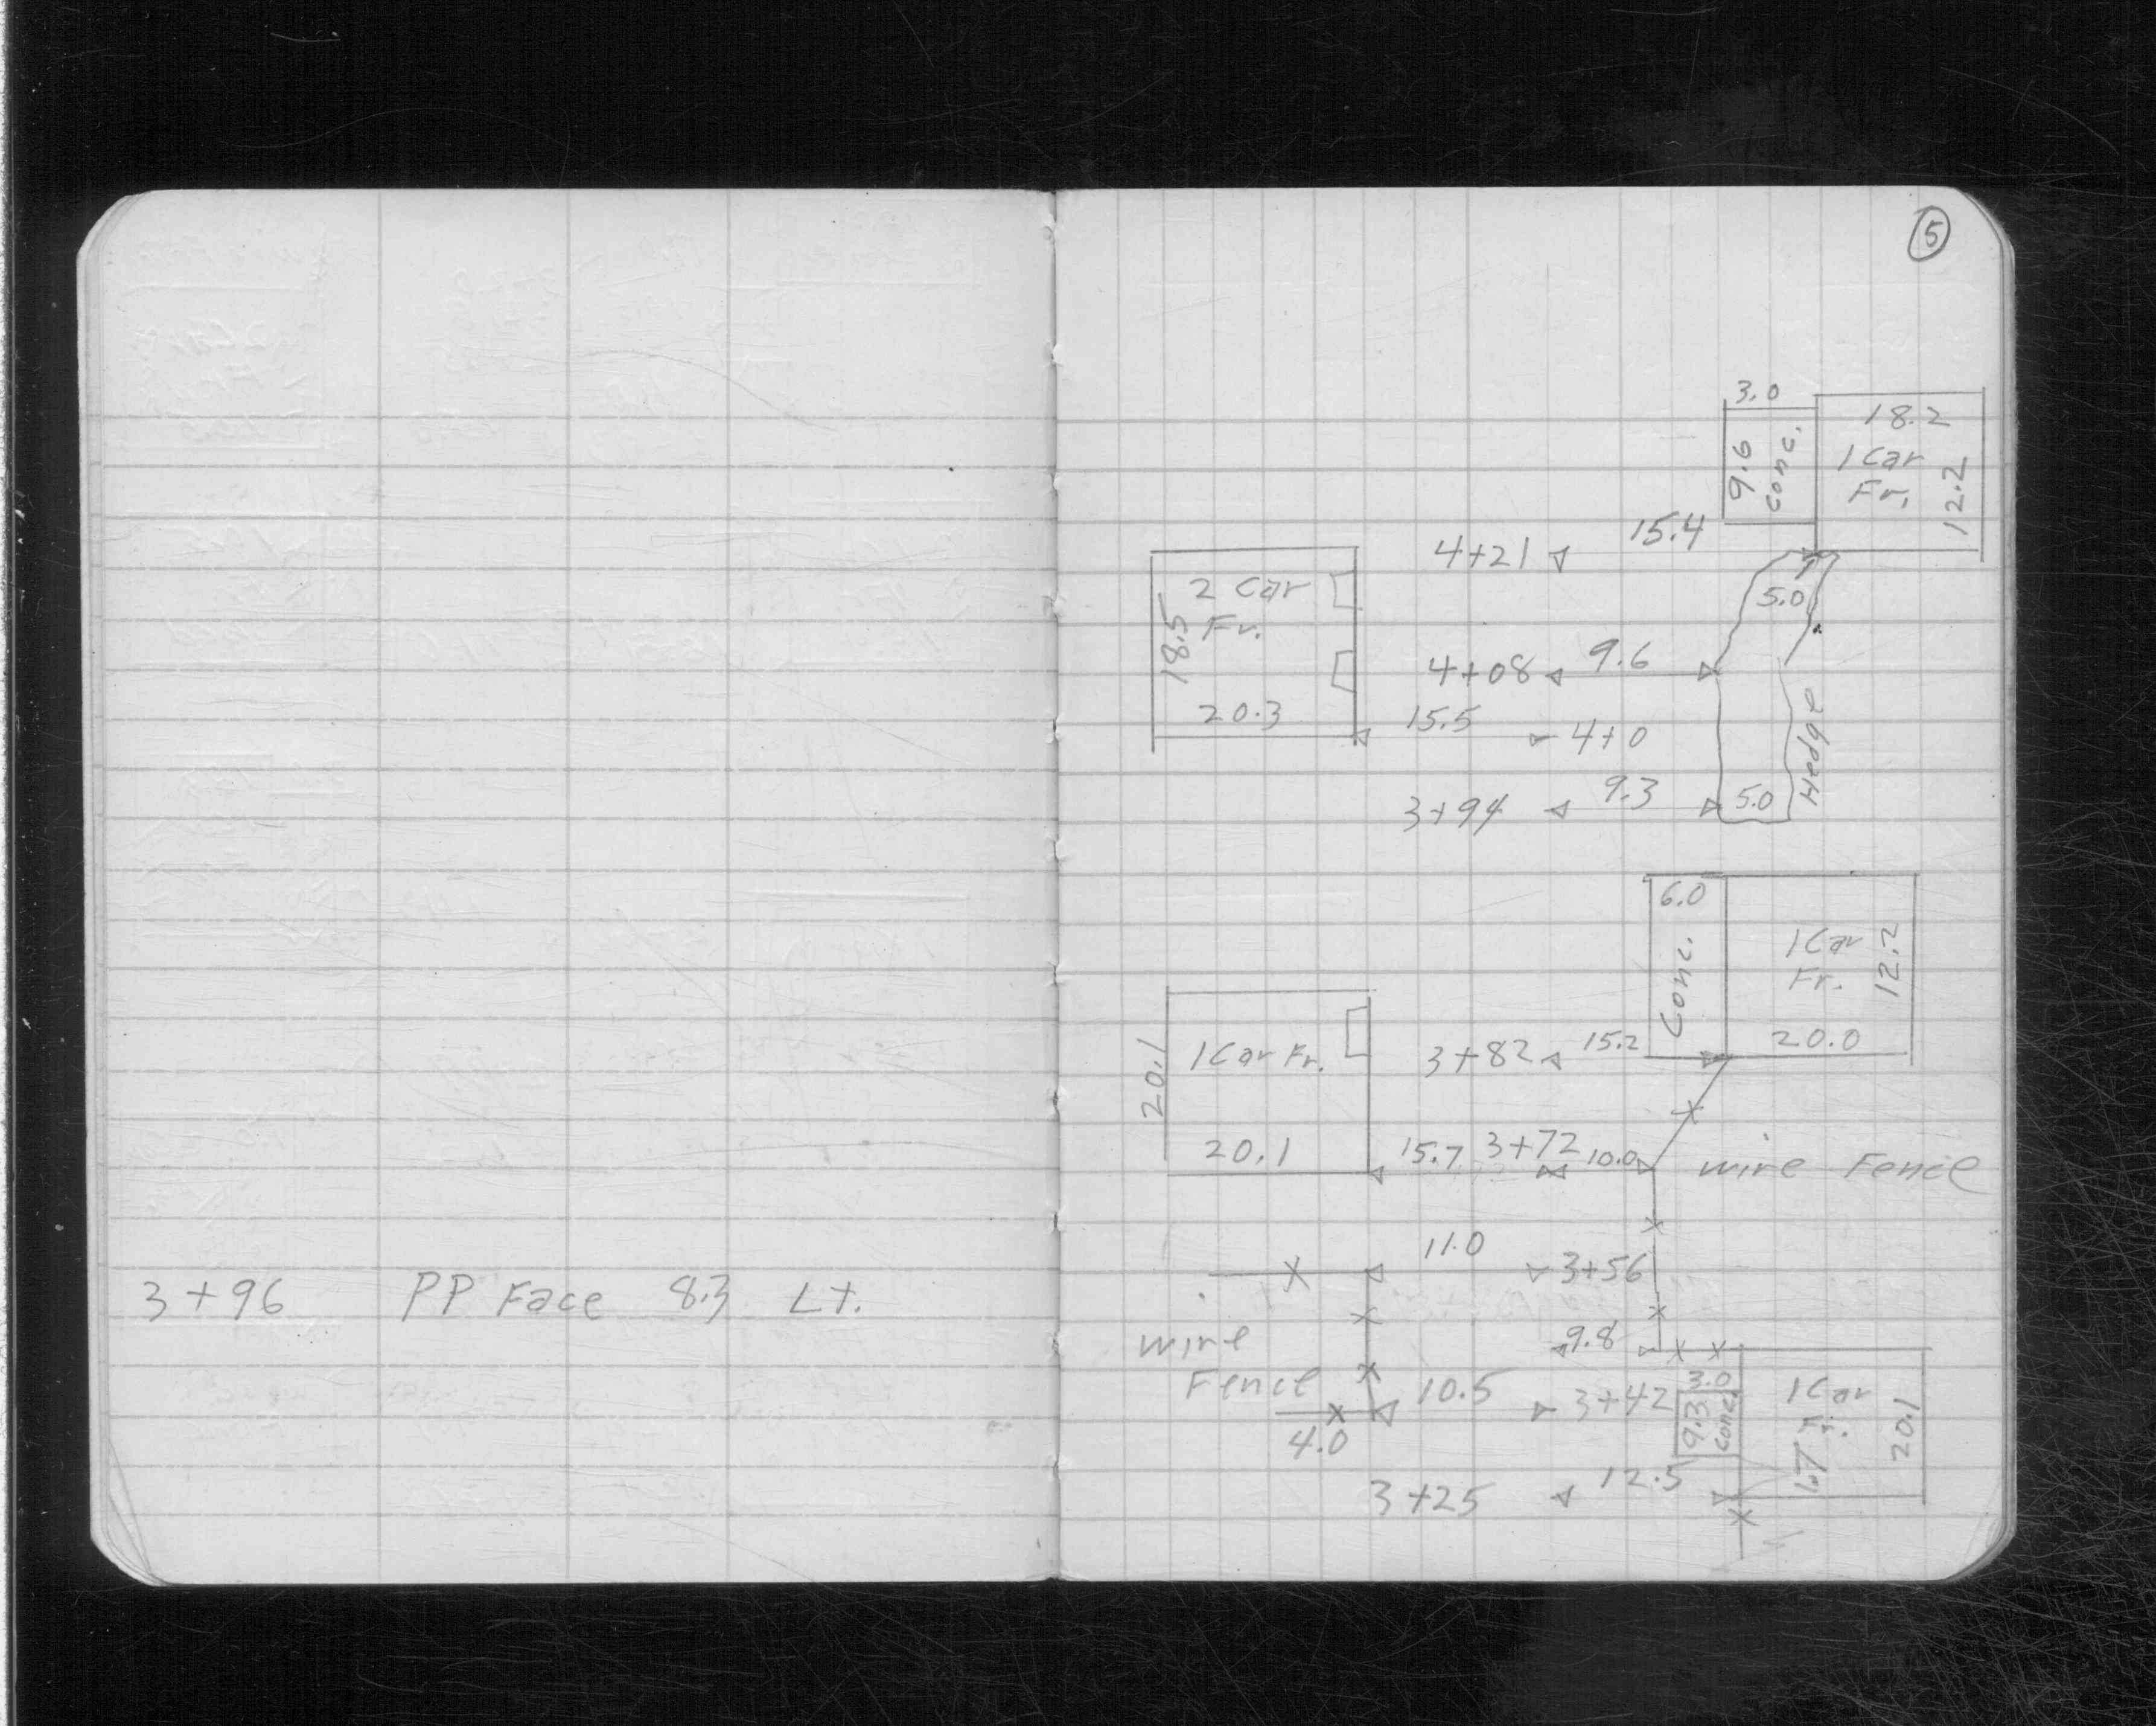 3+96 PP Face 8.3 Lt.
5
3.0
18.2
9.6
conc.
1 Car
Fr.
12.2
4+21 15.4
2 Car
Fr.
18.5
5.0
4+08 9.6
20.3
15.5 4+0
Hedge
3+94 9.3 5.0
6.0
Conc.
1 Car
Fr.
12.2
20.0
20.1
1 Car Fr.
3+82 15.2
20.1
15.7 3+72 10.0 wire Fence
11.0 3+56
wire
Fence
9.8
10.5 3+42
3.0
9.3
conc.
1 Car
Fr.
20.1
4.0
3+25 12.5